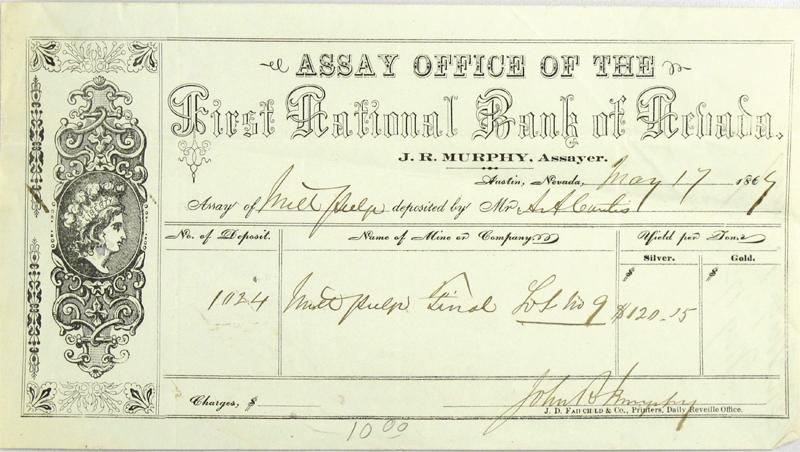 ASSAY OFFICE OF THE
First National Bank of Nevada.
J. R. MURPHY, Assayer.
Austin, Nevada, May 17 1867
Assay of Mill Pulp deposited by Mr A A Curtis
No. of Deposit. Name of Mine or Company. Yield per Ton.
Silver. Gold.
$ $
1024 Mill pulp Final Lot No 9 $120.15
Charges, $
John R Murphy
J. D. FAIRCHILD & Co., Printers, Daily Reveille Office.
10 00